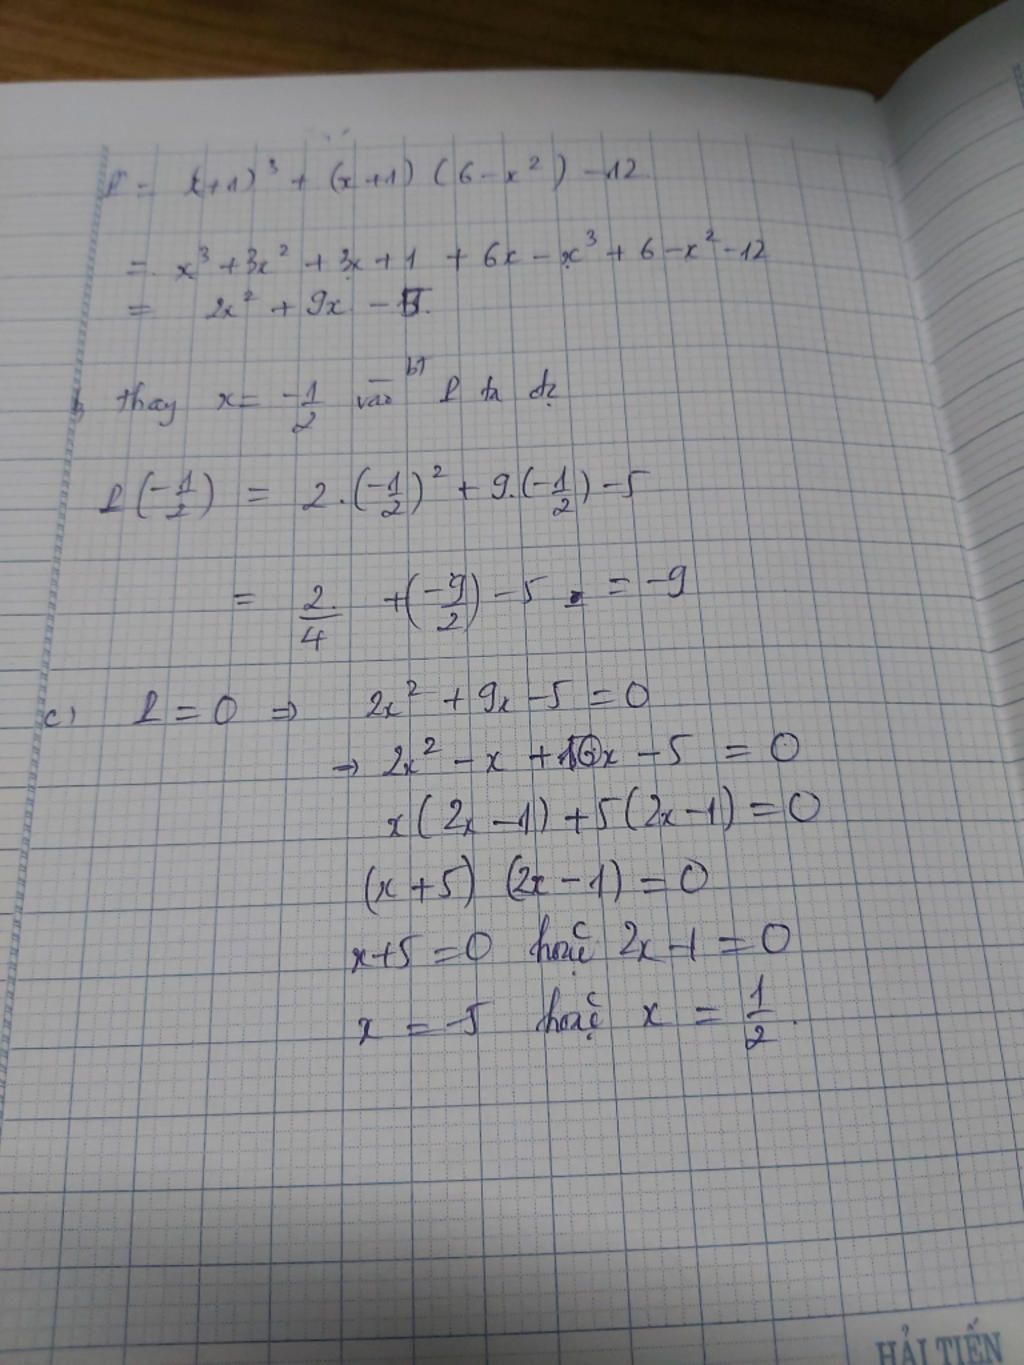 P = (x+1)³ + (x+1) (6-x²) -12
= x³ + 3x² + 3x + 1 + 6x - x³ + 6 - x² - 12
= 2x² + 9x - 5.
b, thay x = -1/2 vào bt P ta đc
P(-1/2) = 2.(-1/2)² + 9.(-1/2) - 5
= 2/4 + (-9/2) - 5 = -9
c) P = 0 ⇒ 2x² + 9x - 5 = 0
→ 2x² - x + 10x - 5 = 0
x(2x-1) + 5(2x-1) = 0
(x+5) (2x-1) = 0
x+5 = 0 hoặc 2x-1 = 0
x = -5 hoặc x = 1/2.
HẢI TIẾN